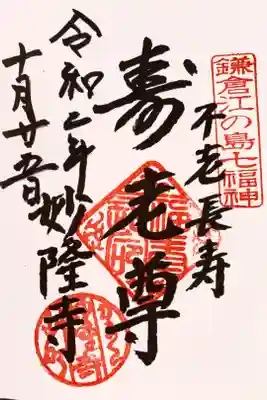 鎌倉江の島七福神
不老長寿
寿老尊
妙隆寺
令和二年
十月廿五日